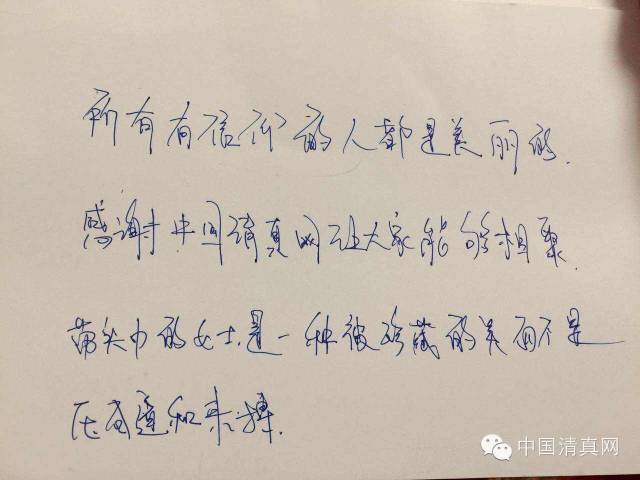 所有有信仰的人都是美丽的.
感谢中国清真网让大家能够相聚.
带头巾的女士,是一种被珍藏的美而不是
压 和
中国清真网